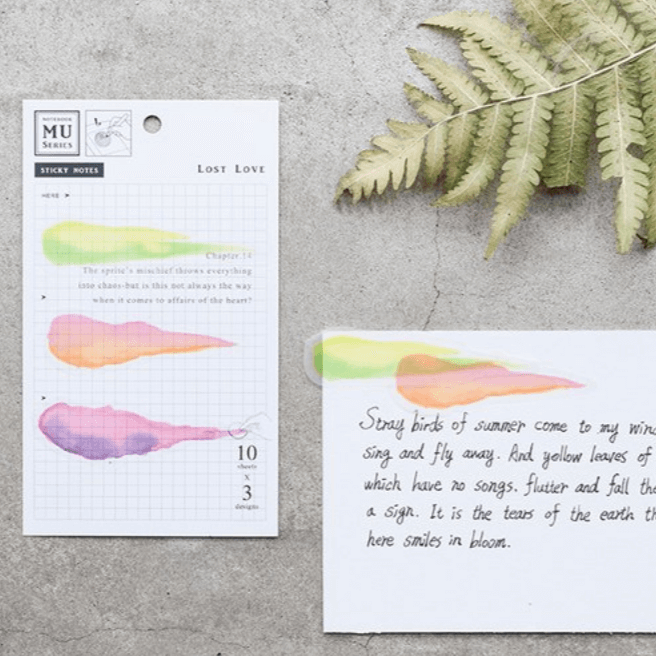 NOTEBOOK
MU
SERIES
STICKY NOTES
LOST LOVE
HERE
Chapter.14
The sprite's mischief throws everything
into chaos-but is this not always the way
when it comes to affairs of the heart?
10
sheets
X
3
designs
Stray birds of summer come to my
sing and fly away. And yellow leaves of
which have no songs. flutter and fall
a sign. It is the tears of the earth
here smiles in bloom.